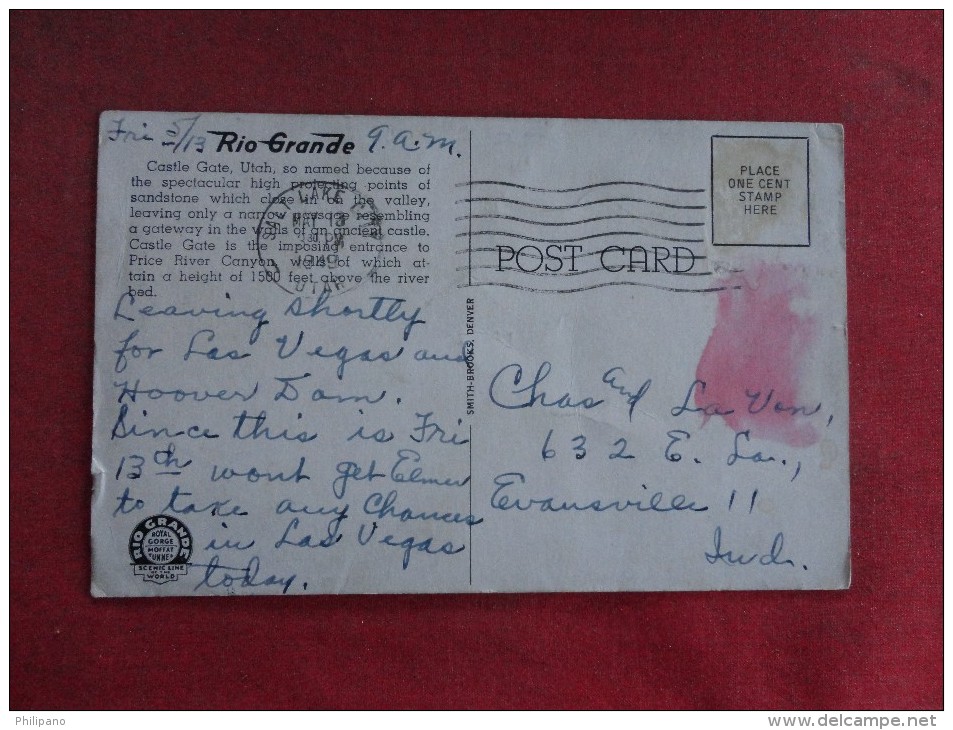 Fri 5/13 Rio Grande 9. a.m.
Castle Gate, Utah, so named because of
the spectacular high projecting points of
sandstone which close in on the valley,
leaving only a narrow passage resembling
a gateway in the walls of an ancient castle.
Castle Gate is the imposing entrance to
Price River Canyon, walls of which at-
tain a height of 1500 feet above the river
bed.
SALT LAKE CITY
MAY 13
30 PM
1949
UTAH
Leaving shortly
for Las Vegas and
Hoover Dam.
Since this is Fri
13th wont get Elmer
to take any Chances
in Las Vegas
today.
RIO GRANDE
ROYAL
GORGE
MOFFAT
TUNNEL
SCENIC LINE
OF THE
WORLD
SMITH-BROOKS, DENVER
PLACE
ONE CENT
STAMP
HERE
POST CARD
Chas and La Von,
632 E. La.,
Evansville 11
Ind.
Philipano
www.delcampe.net